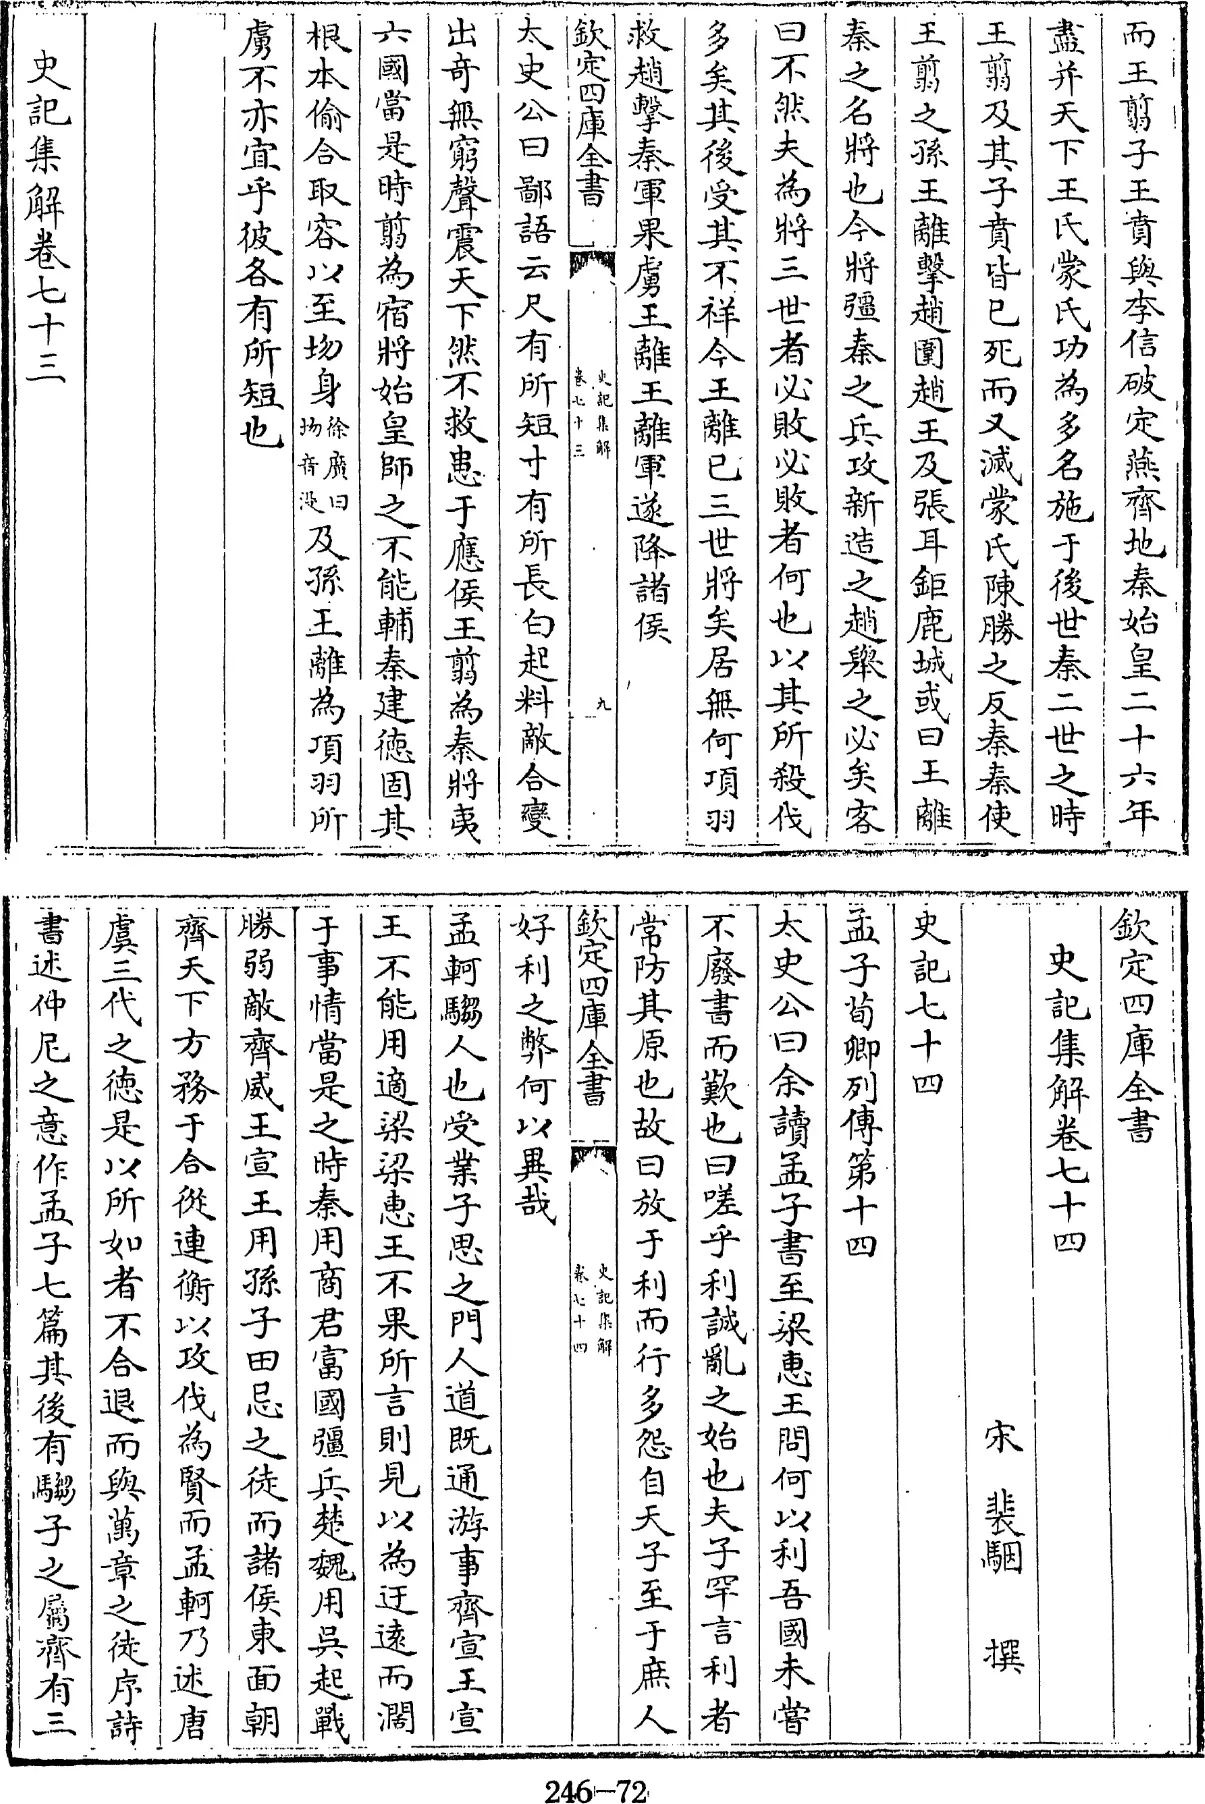 而王翦子王賁與李信破定燕齊地秦始皇二十六年
盡并天下王氏蒙氏功為多名施于後世秦二世之時
王翦及其子賁皆已死而又滅蒙氏陳勝之反秦秦使
王翦之孫王離擊趙圍趙王及張耳鉅鹿城或曰王離
秦之名將也今將彊秦之兵攻新造之趙舉之必矣客
曰不然夫為將三世者必敗必敗者何也以其所殺伐
多矣其後受其不祥今王離已三世將矣居無何項羽
救趙擊秦軍果虜王離王離軍遂降諸侯
欽定四庫全書
史記集解
卷七十三
九
太史公曰鄙語云尺有所短寸有所長白起料敵合變
出奇無窮聲震天下然不救患于應侯王翦為秦將夷
六國當是時翦為宿將始皇師之不能輔秦建德固其
根本偷合取容以至圽身徐廣曰圽音沒及孫王離為項羽所
虜不亦宜乎彼各有所短也
史記集解卷七十三
欽定四庫全書
史記集解卷七十四
宋 裴駰 撰
史記七十四
孟子荀卿列傳第十四
太史公曰余讀孟子書至梁惠王問何以利吾國未嘗
不廢書而歎也曰嗟乎利誠亂之始也夫子罕言利者
常防其原也故曰放于利而行多怨自天子至于庶人
欽定四庫全書
史記集解
卷七十四
好利之弊何以異哉
孟軻騶人也受業子思之門人道既通游事齊宣王宣
王不能用適梁梁惠王不果所言則見以為迂遠而濶
于事情當是之時秦用商君富國彊兵楚魏用吳起戰
勝弱敵齊威王宣王用孫子田忌之徒而諸侯東面朝
齊天下方務于合從連衡以攻伐為賢而孟軻乃述唐
虞三代之德是以所如者不合退而與萬章之徒序詩
書述仲尼之意作孟子七篇其後有騶子之屬齊有三
246-72